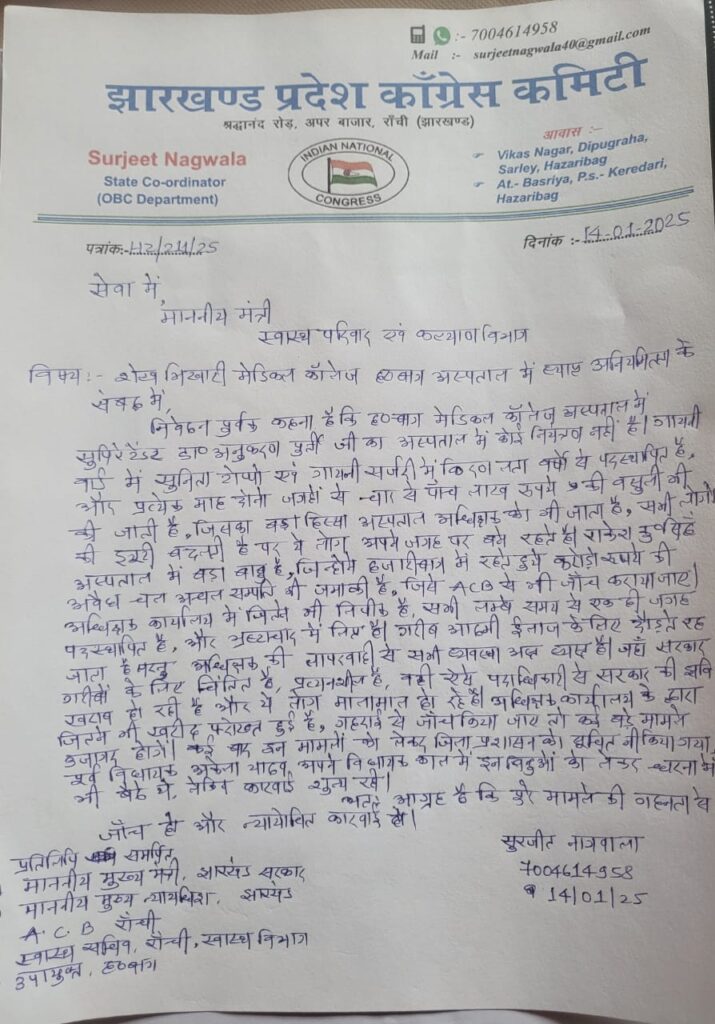 :- 7004614958
Mail :- surjeetnagwala40@gmail.com
झारखण्ड प्रदेश काँग्रेस कमिटी
श्रद्धानंद रोड़, अपर बाजार, राँची (झारखण्ड)
Surjeet Nagwala
State Co-ordinator
(OBC Department)
INDIAN NATIONAL
CONGRESS
आवास :-
Vikas Nagar, Dipugraha,
Sarley, Hazaribag
At.- Basriya, P.s.- Keredari,
Hazaribag
पत्रांक:- HZ/211/25
दिनांक :- 14-01-2025
सेवा में,
माननीय मंत्री
स्वास्थ परिवार एवं कल्याण विभाग
विषय :- शेख भिखारी मेडिकल कॉलेज ह०बाग अस्पताल में व्याप्त अनियमितता के
संबंध में,
निवेदन पूर्वक कहना है कि ह०बाग मेडिकल कॉलेज अस्पताल में
सुपरिटेंडेंट डा० अनुकरण पुर्ती जी का अस्पताल में कोई नियंत्रण नहीं है। गायनी
वार्ड में सुनिता टोप्पो एवं गायनी सर्जरी में किरण लता वर्षों से पदस्थापित है,
और प्रत्येक माह दोनो जगहों से चार से पांच लाख रुपये की वसुली भी
की जाती है, जिसका बड़ा हिस्सा अस्पताल अधिक्षक को भी जाता है, सभी लोगों
की ड्यूटी बदलती है पर ये लोग अपने जगह पर बने रहते है। राकेश
अस्पताल में बड़ा बाबू है, जिन्होंने हजारीबाग में रहते हुये करोड़ो रूपये की
अवैध चल अचल सम्पति भी जमा की है, जिसे ACB से भी जाँच कराया जाए।
अधिक्षक कार्यालय में जितने भी लिपीक है, सभी लम्बे समय से एक ही जगह
पदस्थापित है, और भ्रष्टाचार में लिप्त है। गरीब आदमी ईलाज के लिए दौड़ते रह
जाता है परन्तु अधिक्षक की लापरवाही से सभी व्यवस्था अस्त व्यस्त है। जहाँ सरकार
गरीबों के लिए चिंतित है, प्रयत्नशील है, वहीं ऐसे पदाधिकारी से सरकार की छवि
खराब हो रही है और ये लोग मालामाल हो रहे है। अधिक्षक कार्यालय के द्वारा
जितने भी खरीद फरोख्त हुई है, गहराई से जाँच किया जाए तो कई बड़े मामले
उजागर होंगे। कई बार इन मामलों को लेकर जिला प्रशासन को सूचित भी किया गया
पूर्व विधायक अकेला यादव, अपने विधायक काल में इन बिंदुओं को लेकर धरना में
भी बैठे थे, लेकिन कारवाई शून्य रही।
अतः आग्रह है कि पुरे मामले की गहनता से
जाँच हो और न्यायोचित कारवाई हो।
सुरजीत नागवाला
7004614958
14/01/25
प्रतिलिपि समर्पित
माननीय मुख्य मंत्री, झारखंड सरकार
माननीय मुख्य न्यायधिश, झारखंड
A.C.B राँची
स्वास्थ सचिव, राँची, स्वास्थ विभाग
उपायुक्त, ह०बाग